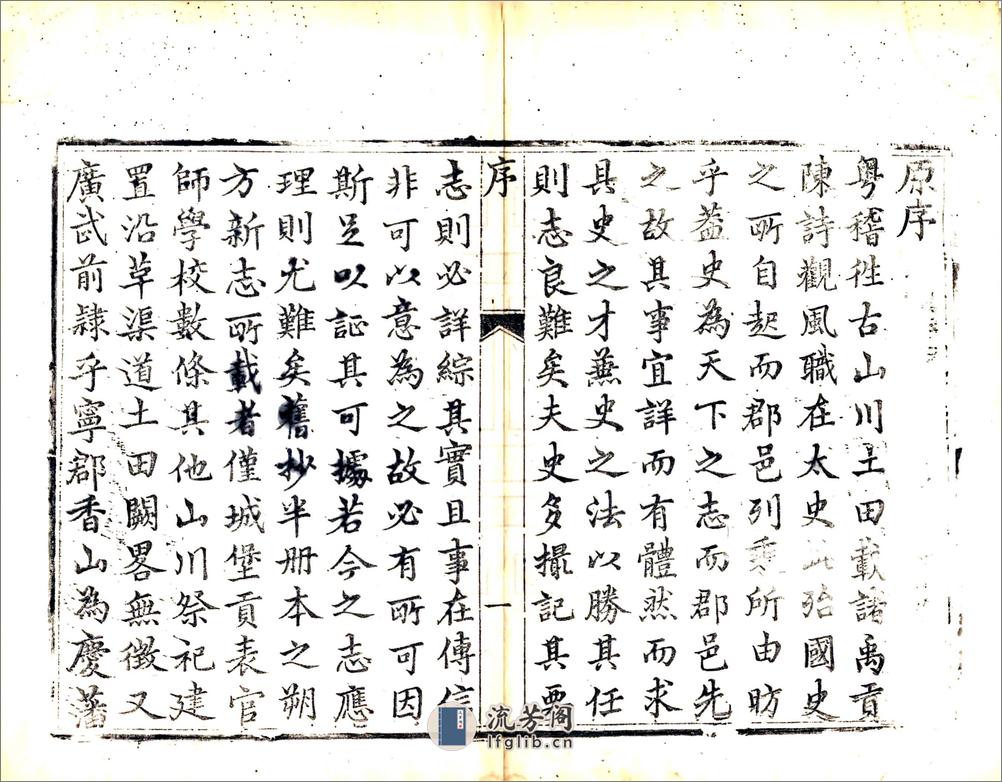 原序
粤稽往古山川土田載諸禹貢
陳詩觀風職在太史此殆國史
之所自起而郡邑列乗所由昉
乎葢史為天下之志而郡邑先
之故其事宜詳而有體然而求
具史之才兼史之法以勝其任
則志良難矣夫史多撮記其要
序
一
志則必詳綜其實且事在傳信
非可以意為之故必有所可因
斯足以証其可據若今之志應
理則尤難矣舊抄半册本之朔
方新志所載者僅城堡貢表官
師學校數條其他山川祭祀建
置沿草渠道土田闕畧無徴又
廣武前隸乎寧郡香山為慶藩
流芳阁
lfglib.cn